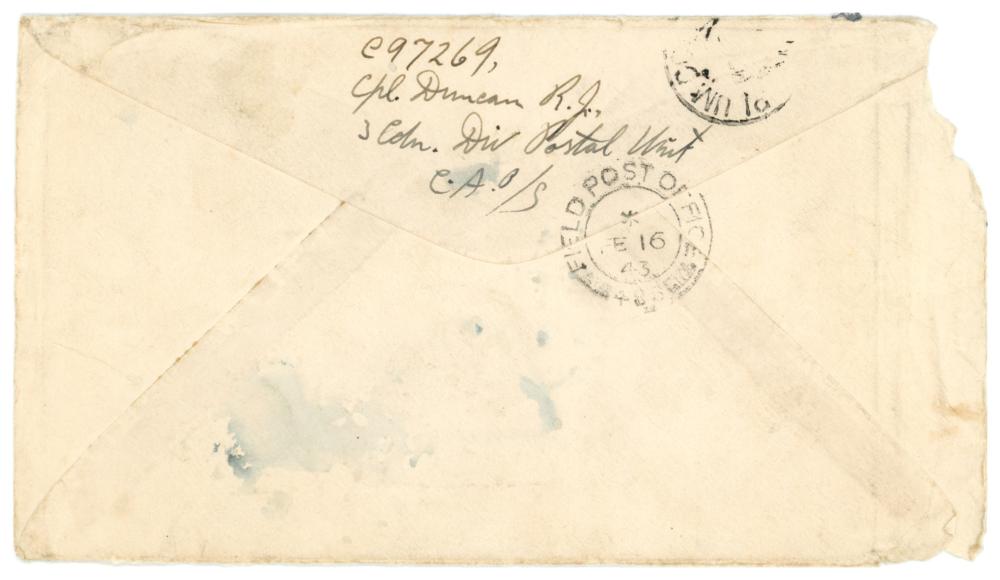 C97269,
Cpl. Duncan R.J.,
3 Cdn. Div Postal Unit
C.A. O/S
FIELD POST OFFICE
FE 16
43